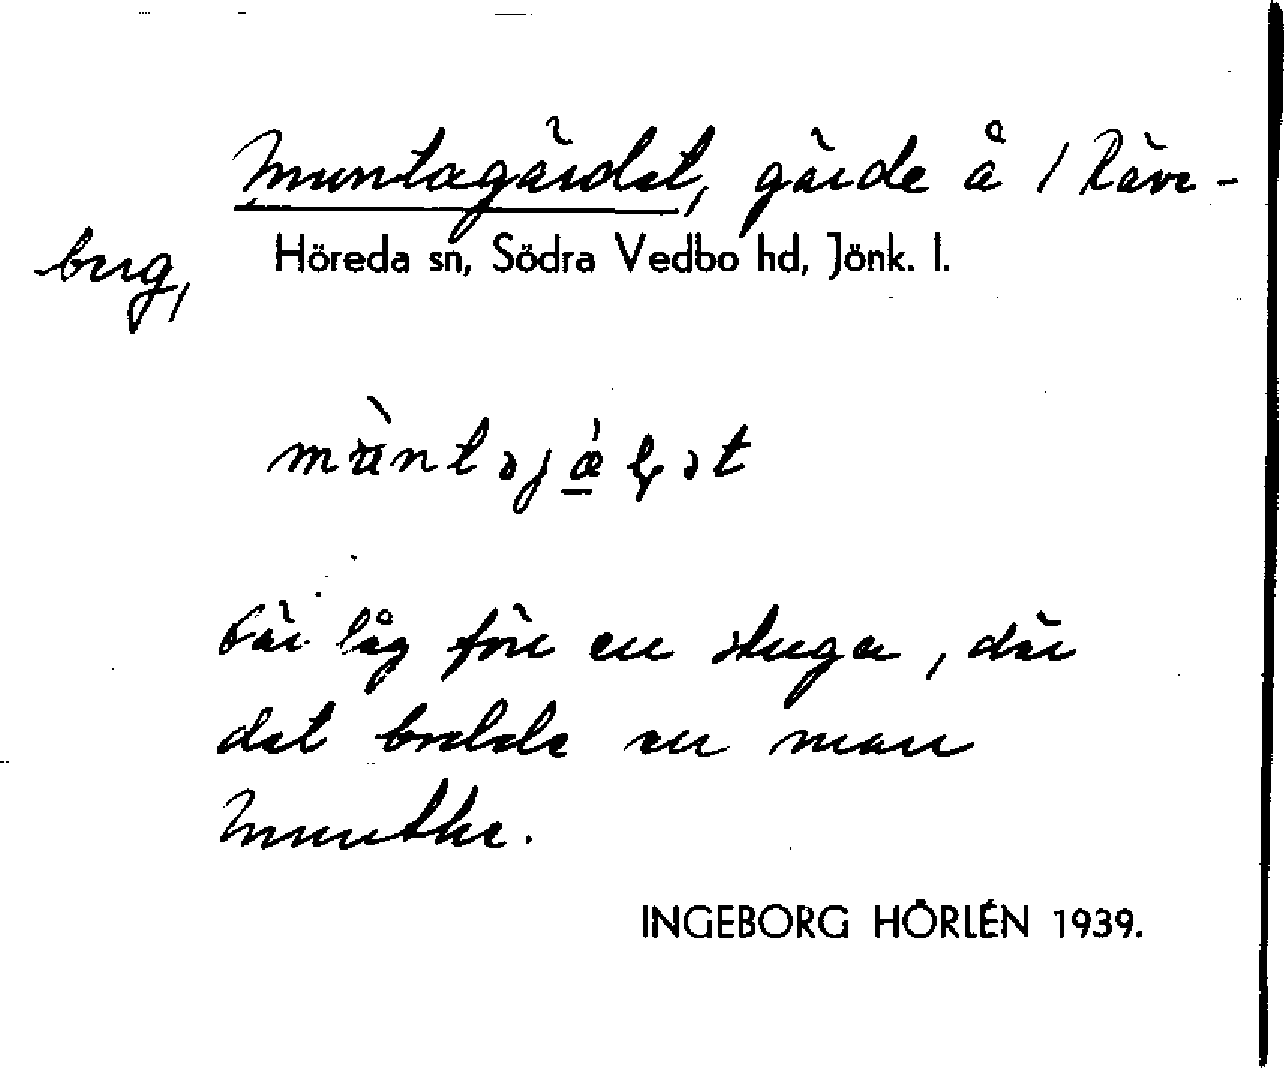 Muntagärdet, gärde å / Räve-
berg,
Höreda sn, Södra Vedbo hd, Jönk. l.
Där låg förr en stuga, där
det bodde en man
Munthe.
INGEBORG HÖRLÉN 1939.